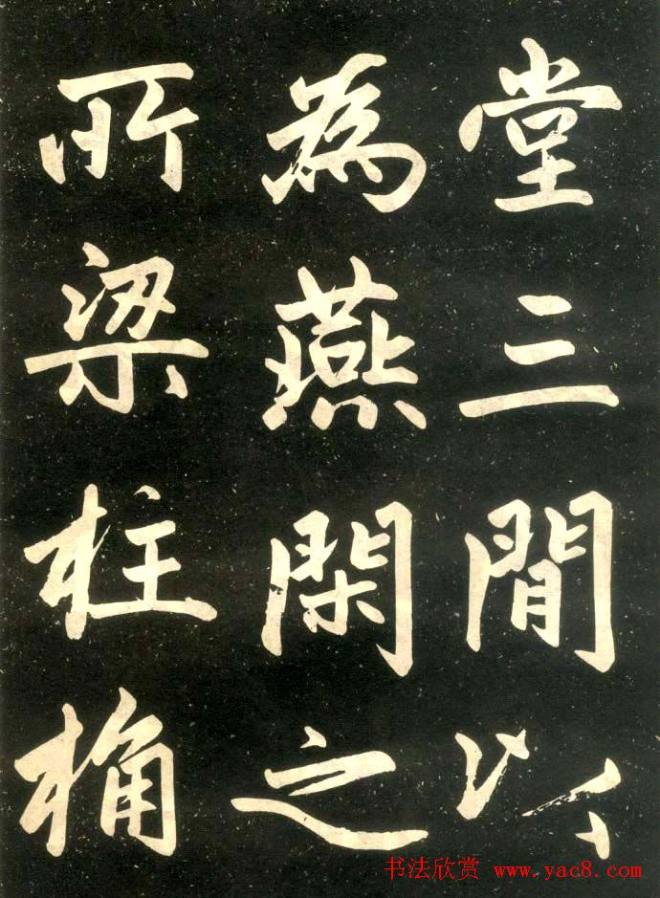 堂三間以
為燕閑之
所梁柱桷
书法欣赏 www.yac8.com